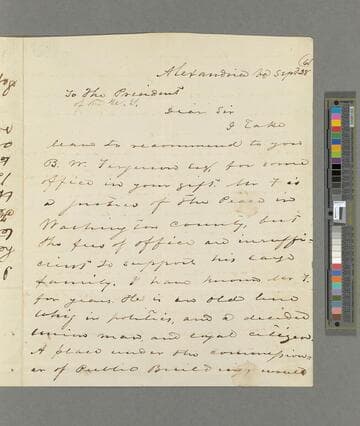 Alexandria Va Sept 28
To The President
of the U. S.
Dear Sir
I Take
leave to recommend to you
B. W. Ferguson Esq. for some
office in your gift. Mr F is
a justice of the Peace in
Washington County, but
the fees of office are insuffi-
cient to support his large
family. I have known Mr. F.
for years. He is an old line
Whig in politics, and a decided
union man and loyal citizen.
A place under the commission-
er of Public Buildings would